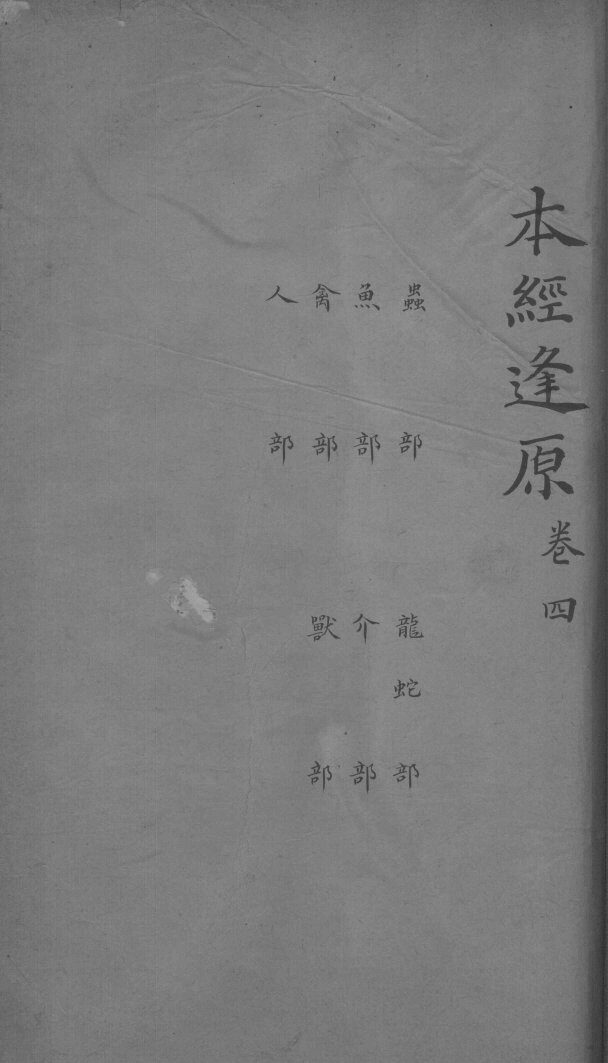 本經逢原卷四
蟲部 龍蛇部
魚部 介部
禽部 獸部
人部